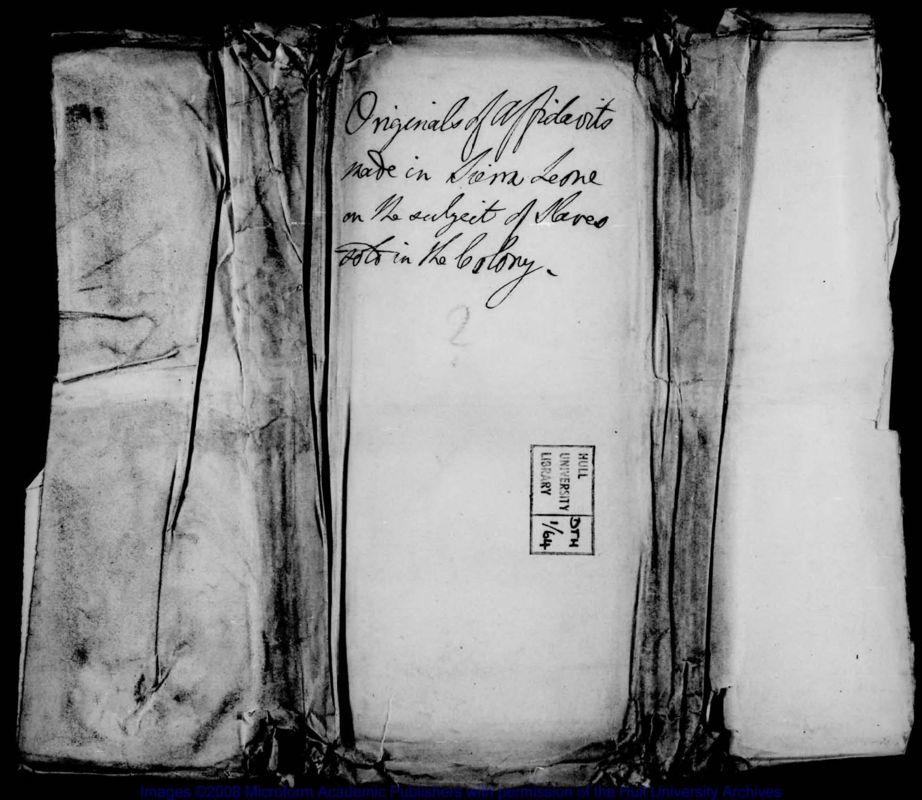 Originals of Affidavits
made in Sierra Leone
on the subject of Slaves
sold in the Colony.
2
HULL
UNIVERSITY
LIBRARY
DTH
1/64
Images ©2008 Microform Academic Publishers with permission of the Hull University Archives